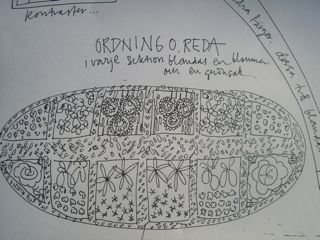 kontraster...
ORDNING O. REDA
i varje sektion blandas en blomma
och en grönsak...
dessa två blandas